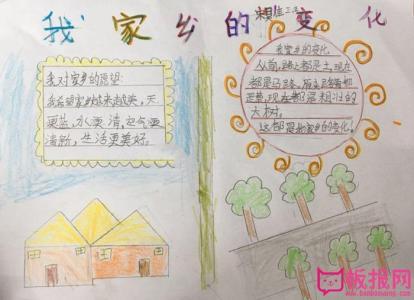 我家乡的变化
我对家乡的愿望:
我希望家乡越来越美,天
更蓝,水更清,空气更
清新,生活更美好。
我家乡的变化
从前,路上都是土,现在
都是马路,
芒荒,现在都是相对的
大树。
这都是我家乡的变化。
板报网
www.banbaowang.com